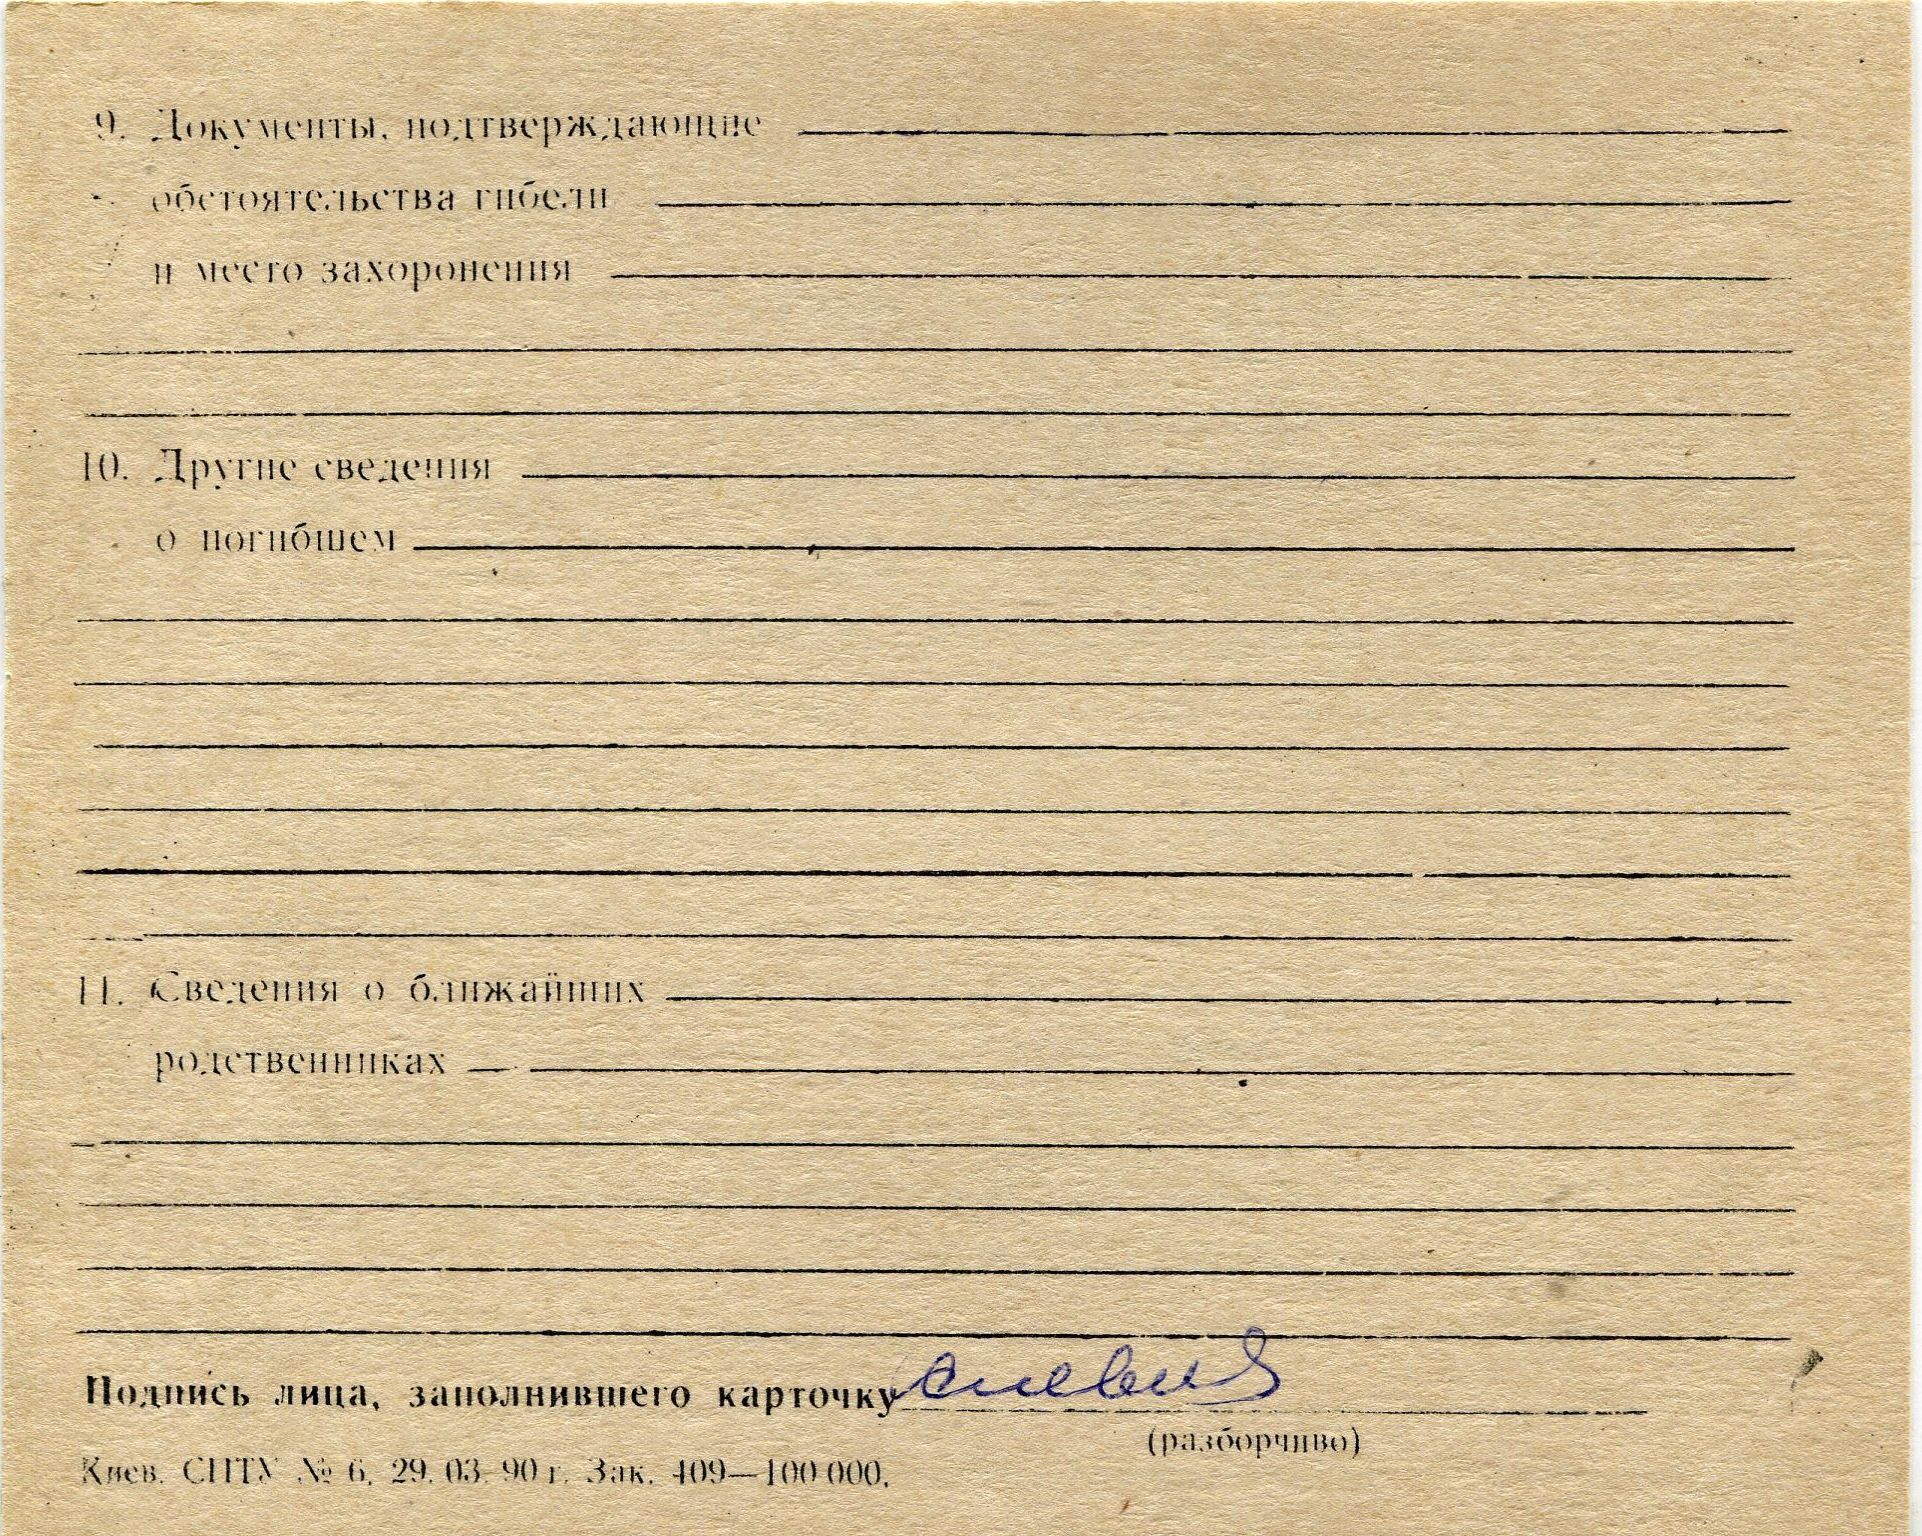 9. Документы, подтверждающие
обстоятельства гибели
и место захоронения
10. Другие сведения
о погибшем
11. Сведения о ближайших
родственниках
Подпись лица, заполнившего карточку
(разборчиво)
Киев. СПТУ № 6. 29. 03. 90 г. Зак. 409—100 000.